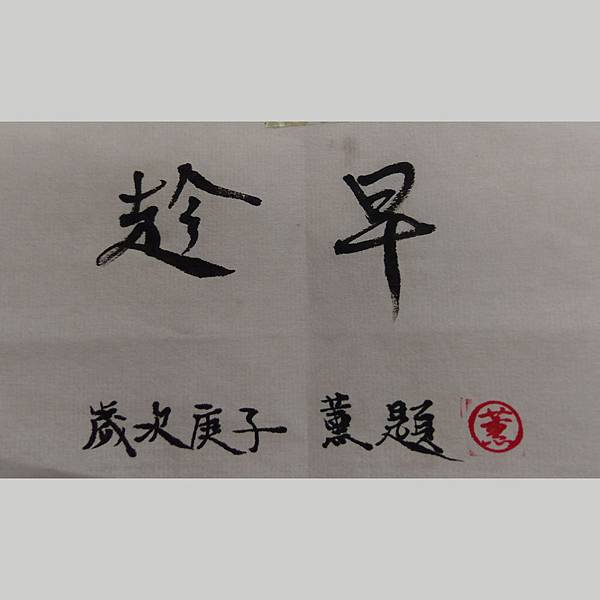 趁早
歲次庚子 薰題 薰